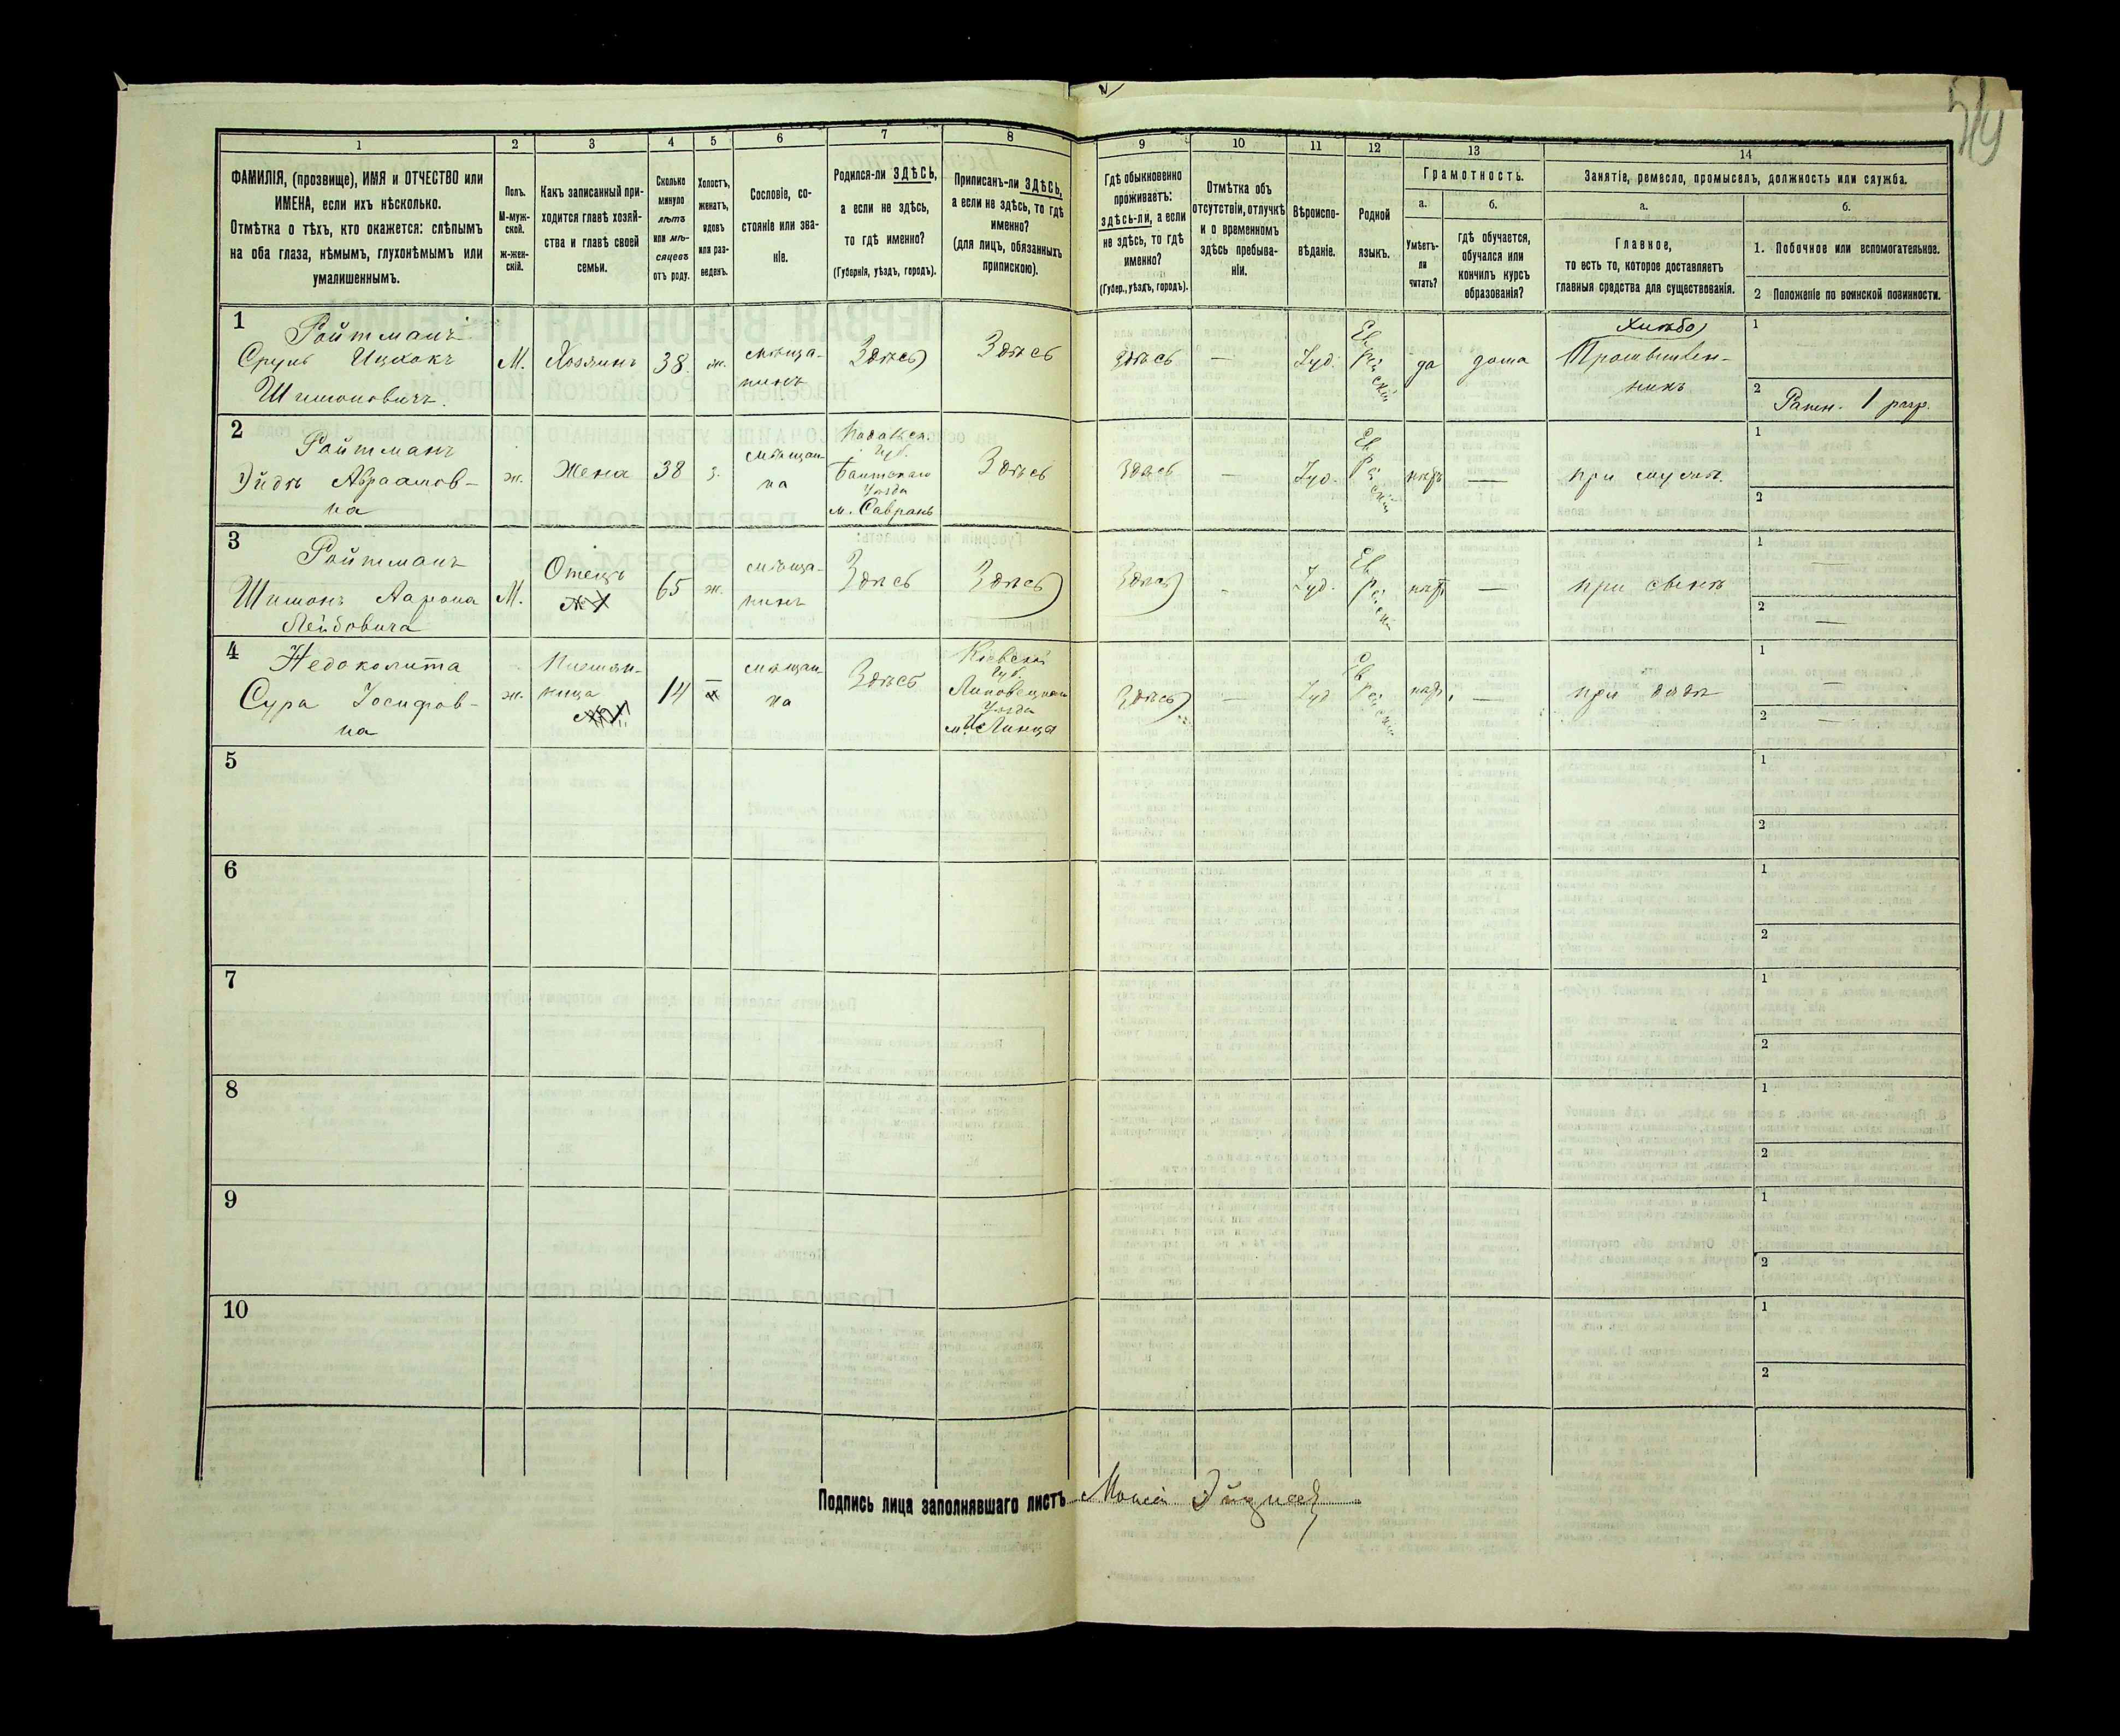 1
2
3
4
5
6
7
8
9
10
11
12
13
14
ФАМИЛІЯ, (прозвище), ИМЯ и ОТЧЕСТВО или
ИМЕНА, если ихъ нѣсколько.
Отмѣтка о тѣхъ, кто окажется: слѣпымъ
на оба глаза, нѣмымъ, глухонѣмымъ или
умалишеннымъ.
Полъ.
М-муж-
ской.
Ж-жен-
скій.
Какъ записанный при-
ходится главѣ хозяй-
ства и главѣ своей
семьи.
Сколько
минуло
лѣтъ
или мѣ-
сяцевъ
отъ роду.
Холостъ,
женатъ,
вдовъ
или раз-
веденъ.
Сословіе, со-
стояніе или зва-
ніе.
Родился-ли ЗДѢСЬ,
а если не здѣсь,
то гдѣ именно?
(Губернія, уѣздъ, городъ).
Приписанъ-ли ЗДѢСЬ,
а если не здѣсь, то гдѣ
именно?
(для лицъ, обязанныхъ
припискою).
Гдѣ обыкновенно
проживаетъ:
здѣсь-ли, а если
не здѣсь, то гдѣ
именно?
(Губер., уѣздъ, городъ).
Отмѣтка объ
отсутствіи, отлучкѣ
и о временномъ
здѣсь пребыва-
ніи.
Вѣроиспо-
вѣданіе.
Родной
языкъ.
Грамотность.
а.
Умѣетъ-
ли
читать?
б.
гдѣ обучается,
обучался или
кончилъ курсъ
образованія?
Занятіе, ремесло, промыселъ, должность или служба.
а.
Главное,
то есть то, которое доставляетъ
главныя средства для существованія.
б.
1. Побочное или вспомогательное.
2 Положеніе по воинской повинности.
1
Ройтманъ
Сруль Ицхокъ
Шимоновичъ
М.
Хозяинъ
38.
ж.
мѣща-
нинъ
Здѣсь
Здѣсь
Здѣсь
—
Іуд.
да
дома
1
2
1 разр.
2
Ройтманъ
Авраамов-
на
ж.
Жена
38
з.
мѣщан-
ка
Подольск.
Губ.
Балтскаго
Уѣзда
м. Саврань
Здѣсь
Здѣсь
—
Іуд.
—
при мужѣ.
1
2
3
Ройтманъ
Шимонъ Аарона
Лейбовича
М.
Отецъ
65
ж.
мѣща-
нинъ
Здѣсь
Здѣсь
Здѣсь
-
Іуд.
—
при сынѣ
1
—
2
—
4
Сура Іосифов-
на
ж.
Племян-
ница
14
—
мѣщан-
ка
Здѣсь
Кіевской
Губ.
Липовецкаго
Уѣзда
Здѣсь
—
Іуд
—
при дядѣ
1
—
2
—
5
1
2
6
1
2
7
1
2
8
1
2
9
1
2
10
1
2
Подпись лица заполнявшаго листъ